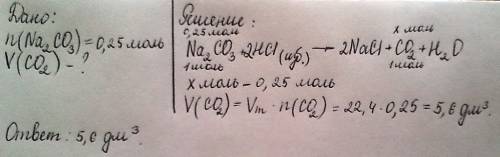 Дано:
n(Na₂CO₃)=0,25 моль
V(CO₂) - ?
Решение:
0,25 моль x моль
Na₂CO₃+2HCl(изб.) → 2NaCl+CO₂+H₂O
1 моль 1 моль
x моль - 0,25 моль
V(CO₂)=Vm · n(CO₂)=22,4·0,25=5,6 дм³
Ответ: 5,6 дм³.